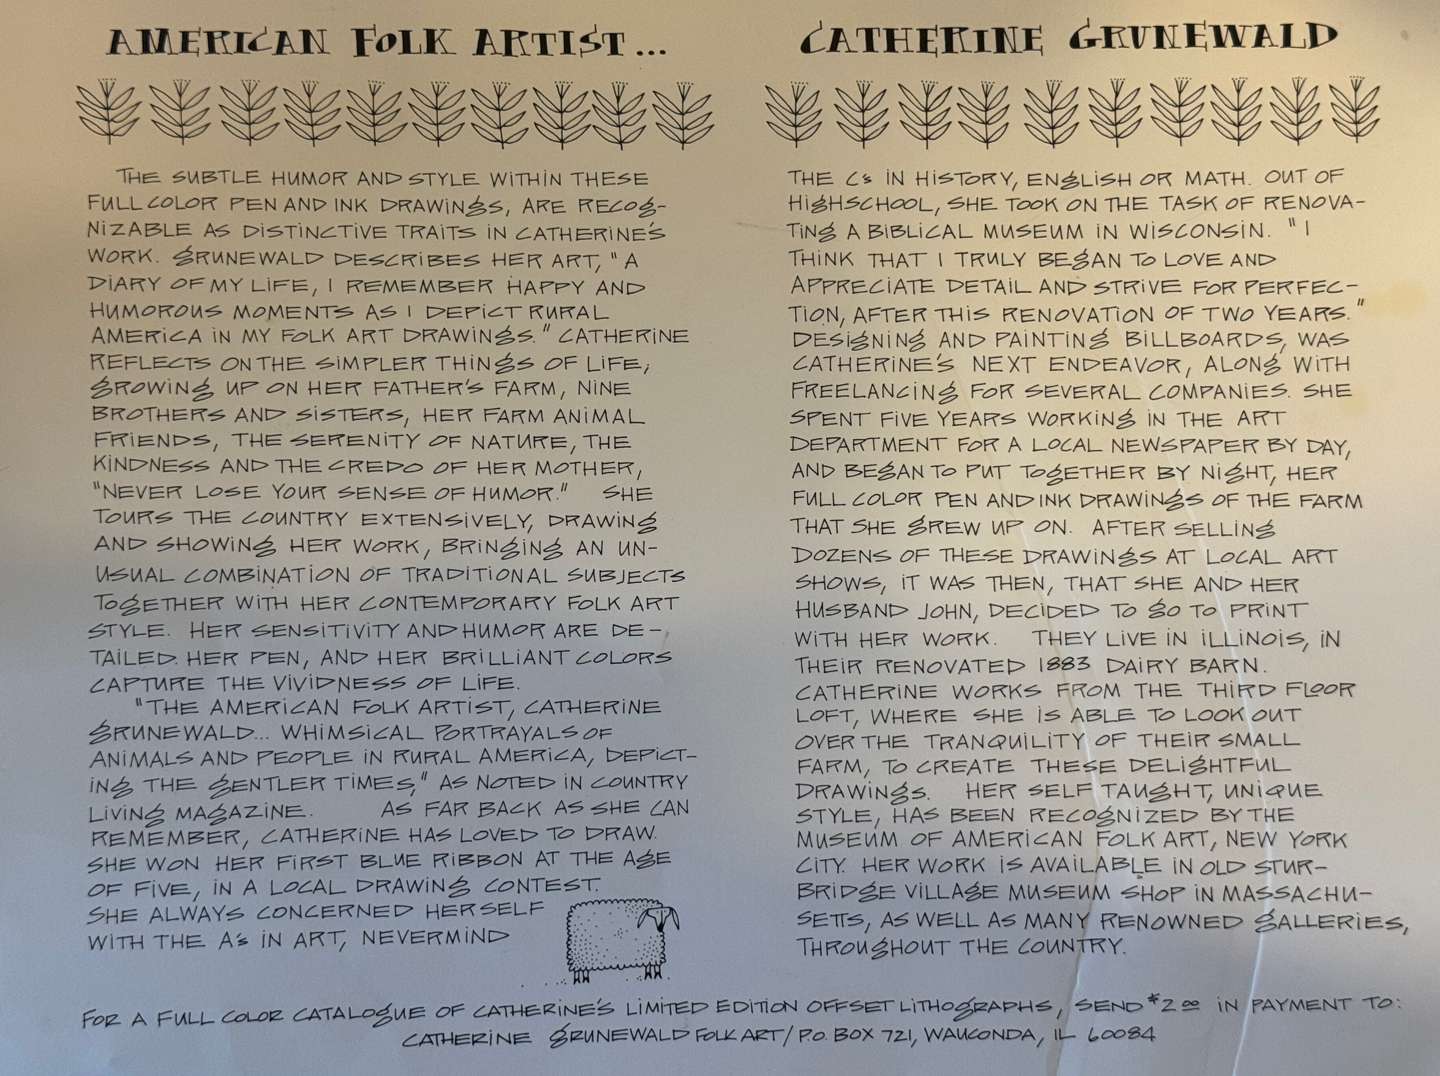 AMERICAN FOLK ARTIST...
THE SUBTLE HUMOR AND STYLE WITHIN THESE
FULL COLOR PEN AND INK DRAWINGS, ARE RECOG-
NIZABLE AS DISTINCTIVE TRAITS IN CATHERINE'S
WORK. GRUNEWALD DESCRIBES HER ART, "A
DIARY OF MY LIFE, I REMEMBER HAPPY AND
HUMOROUS MOMENTS AS I DEPICT RURAL
AMERICA IN MY FOLK ART DRAWINGS." CATHERINE
REFLECTS ON THE SIMPLER THINGS OF LIFE;
GROWING UP ON HER FATHER'S FARM, NINE
BROTHERS AND SISTERS, HER FARM ANIMAL
FRIENDS, THE SERENITY OF NATURE, THE
KINDNESS AND THE CREDO OF HER MOTHER,
"NEVER LOSE YOUR SENSE OF HUMOR." SHE
TOURS THE COUNTRY EXTENSIVELY, DRAWING
AND SHOWING HER WORK, BRINGING AN UN-
USUAL COMBINATION OF TRADITIONAL SUBJECTS
TOGETHER WITH HER CONTEMPORARY FOLK ART
STYLE. HER SENSITIVITY AND HUMOR ARE DE-
TAILED. HER PEN, AND HER BRILLIANT COLORS
CAPTURE THE VIVIDNESS OF LIFE.
"THE AMERICAN FOLK ARTIST, CATHERINE
GRUNEWALD... WHIMSICAL PORTRAYALS OF
ANIMALS AND PEOPLE IN RURAL AMERICA, DEPICT-
ING THE GENTLER TIMES," AS NOTED IN COUNTRY
LIVING MAGAZINE. AS FAR BACK AS SHE CAN
REMEMBER, CATHERINE HAS LOVED TO DRAW.
SHE WON HER FIRST BLUE RIBBON AT THE AGE
OF FIVE, IN A LOCAL DRAWING CONTEST.
SHE ALWAYS CONCERNED HERSELF
WITH THE A's IN ART, NEVERMIND
CATHERINE GRUNEWALD
THE C's IN HISTORY, ENGLISH OR MATH. OUT OF
HIGHSCHOOL, SHE TOOK ON THE TASK OF RENOVA-
TING A BIBLICAL MUSEUM IN WISCONSIN. "I
THINK THAT I TRULY BEGAN TO LOVE AND
APPRECIATE DETAIL AND STRIVE FOR PERFEC-
TION, AFTER THIS RENOVATION OF TWO YEARS."
DESIGNING AND PAINTING BILLBOARDS, WAS
CATHERINE'S NEXT ENDEAVOR, ALONG WITH
FREELANCING FOR SEVERAL COMPANIES. SHE
SPENT FIVE YEARS WORKING IN THE ART
DEPARTMENT FOR A LOCAL NEWSPAPER BY DAY,
AND BEGAN TO PUT TOGETHER BY NIGHT, HER
FULL COLOR PEN AND INK DRAWINGS OF THE FARM
THAT SHE GREW UP ON. AFTER SELLING
DOZENS OF THESE DRAWINGS AT LOCAL ART
SHOWS, IT WAS THEN, THAT SHE AND HER
HUSBAND JOHN, DECIDED TO GO TO PRINT
WITH HER WORK. THEY LIVE IN ILLINOIS, IN
THEIR RENOVATED 1883 DAIRY BARN.
CATHERINE WORKS FROM THE THIRD FLOOR
LOFT, WHERE SHE IS ABLE TO LOOK OUT
OVER THE TRANQUILITY OF THEIR SMALL
FARM, TO CREATE THESE DELIGHTFUL
DRAWINGS. HER SELF TAUGHT, UNIQUE
STYLE, HAS BEEN RECOGNIZED BY THE
MUSEUM OF AMERICAN FOLK ART, NEW YORK
CITY. HER WORK IS AVAILABLE IN OLD STUR-
BRIDGE VILLAGE MUSEUM SHOP IN MASSACHU-
SETTS, AS WELL AS MANY RENOWNED GALLERIES,
THROUGHOUT THE COUNTRY.
FOR A FULL COLOR CATALOGUE OF CATHERINE'S LIMITED EDITION OFFSET LITHOGRAPHS, SEND $2.00 IN PAYMENT TO:
CATHERINE GRUNEWALD FOLK ART/P.O. BOX 721, WAUCONDA, IL 60084